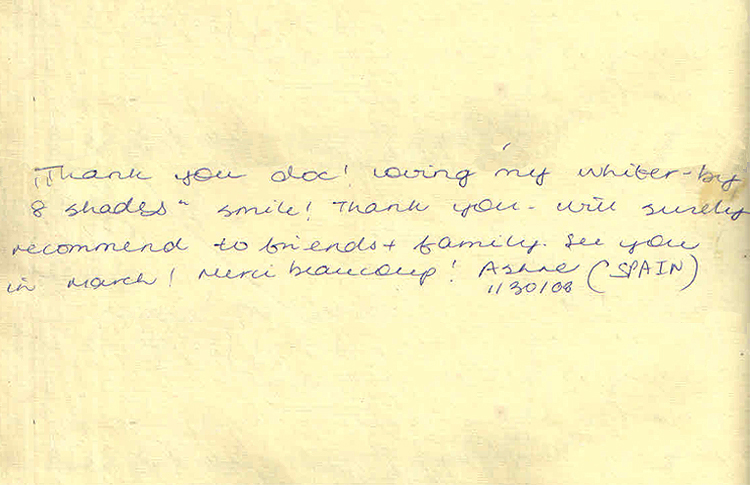 "Thank you doc! Loving my whiter-by
8 shades" smile! Thank you - will surely
recommend to friends + family. See you
in March! Merci beaucoup! (SPAIN)
1/30/08